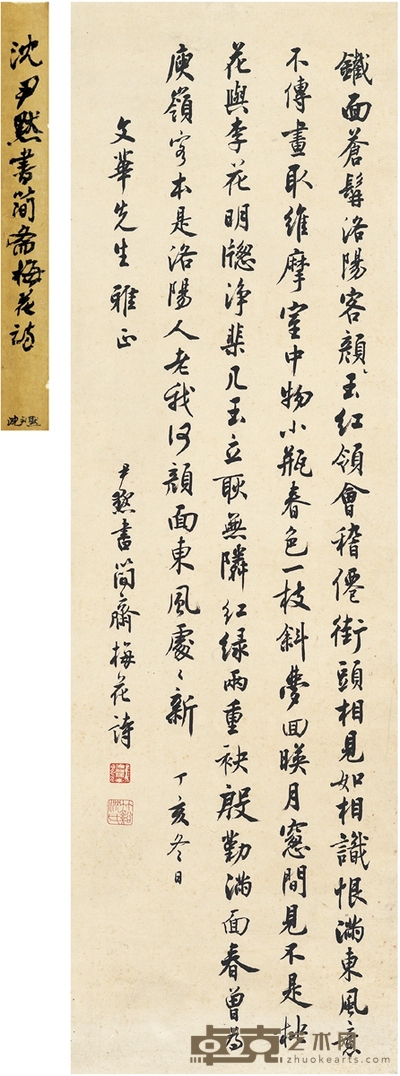 鐵面蒼髯洛陽客顏玉紅領會稽僊街頭相見如相識恨滿東風意
不傳畫取維摩室中物小瓶春色一枝斜夢回暎月窻間見不是桃
花與李花明牎淨棐几玉立耿無隣紅綠兩重袂殷勤滿面春曾為
庾嶺客本是洛陽人老我何顏面東風處〻新 丁亥冬日
文華先生雅正 尹默書簡齋梅花詩
沈尹默書簡齋梅花詩
卓克艺术网
zhuokearts.com